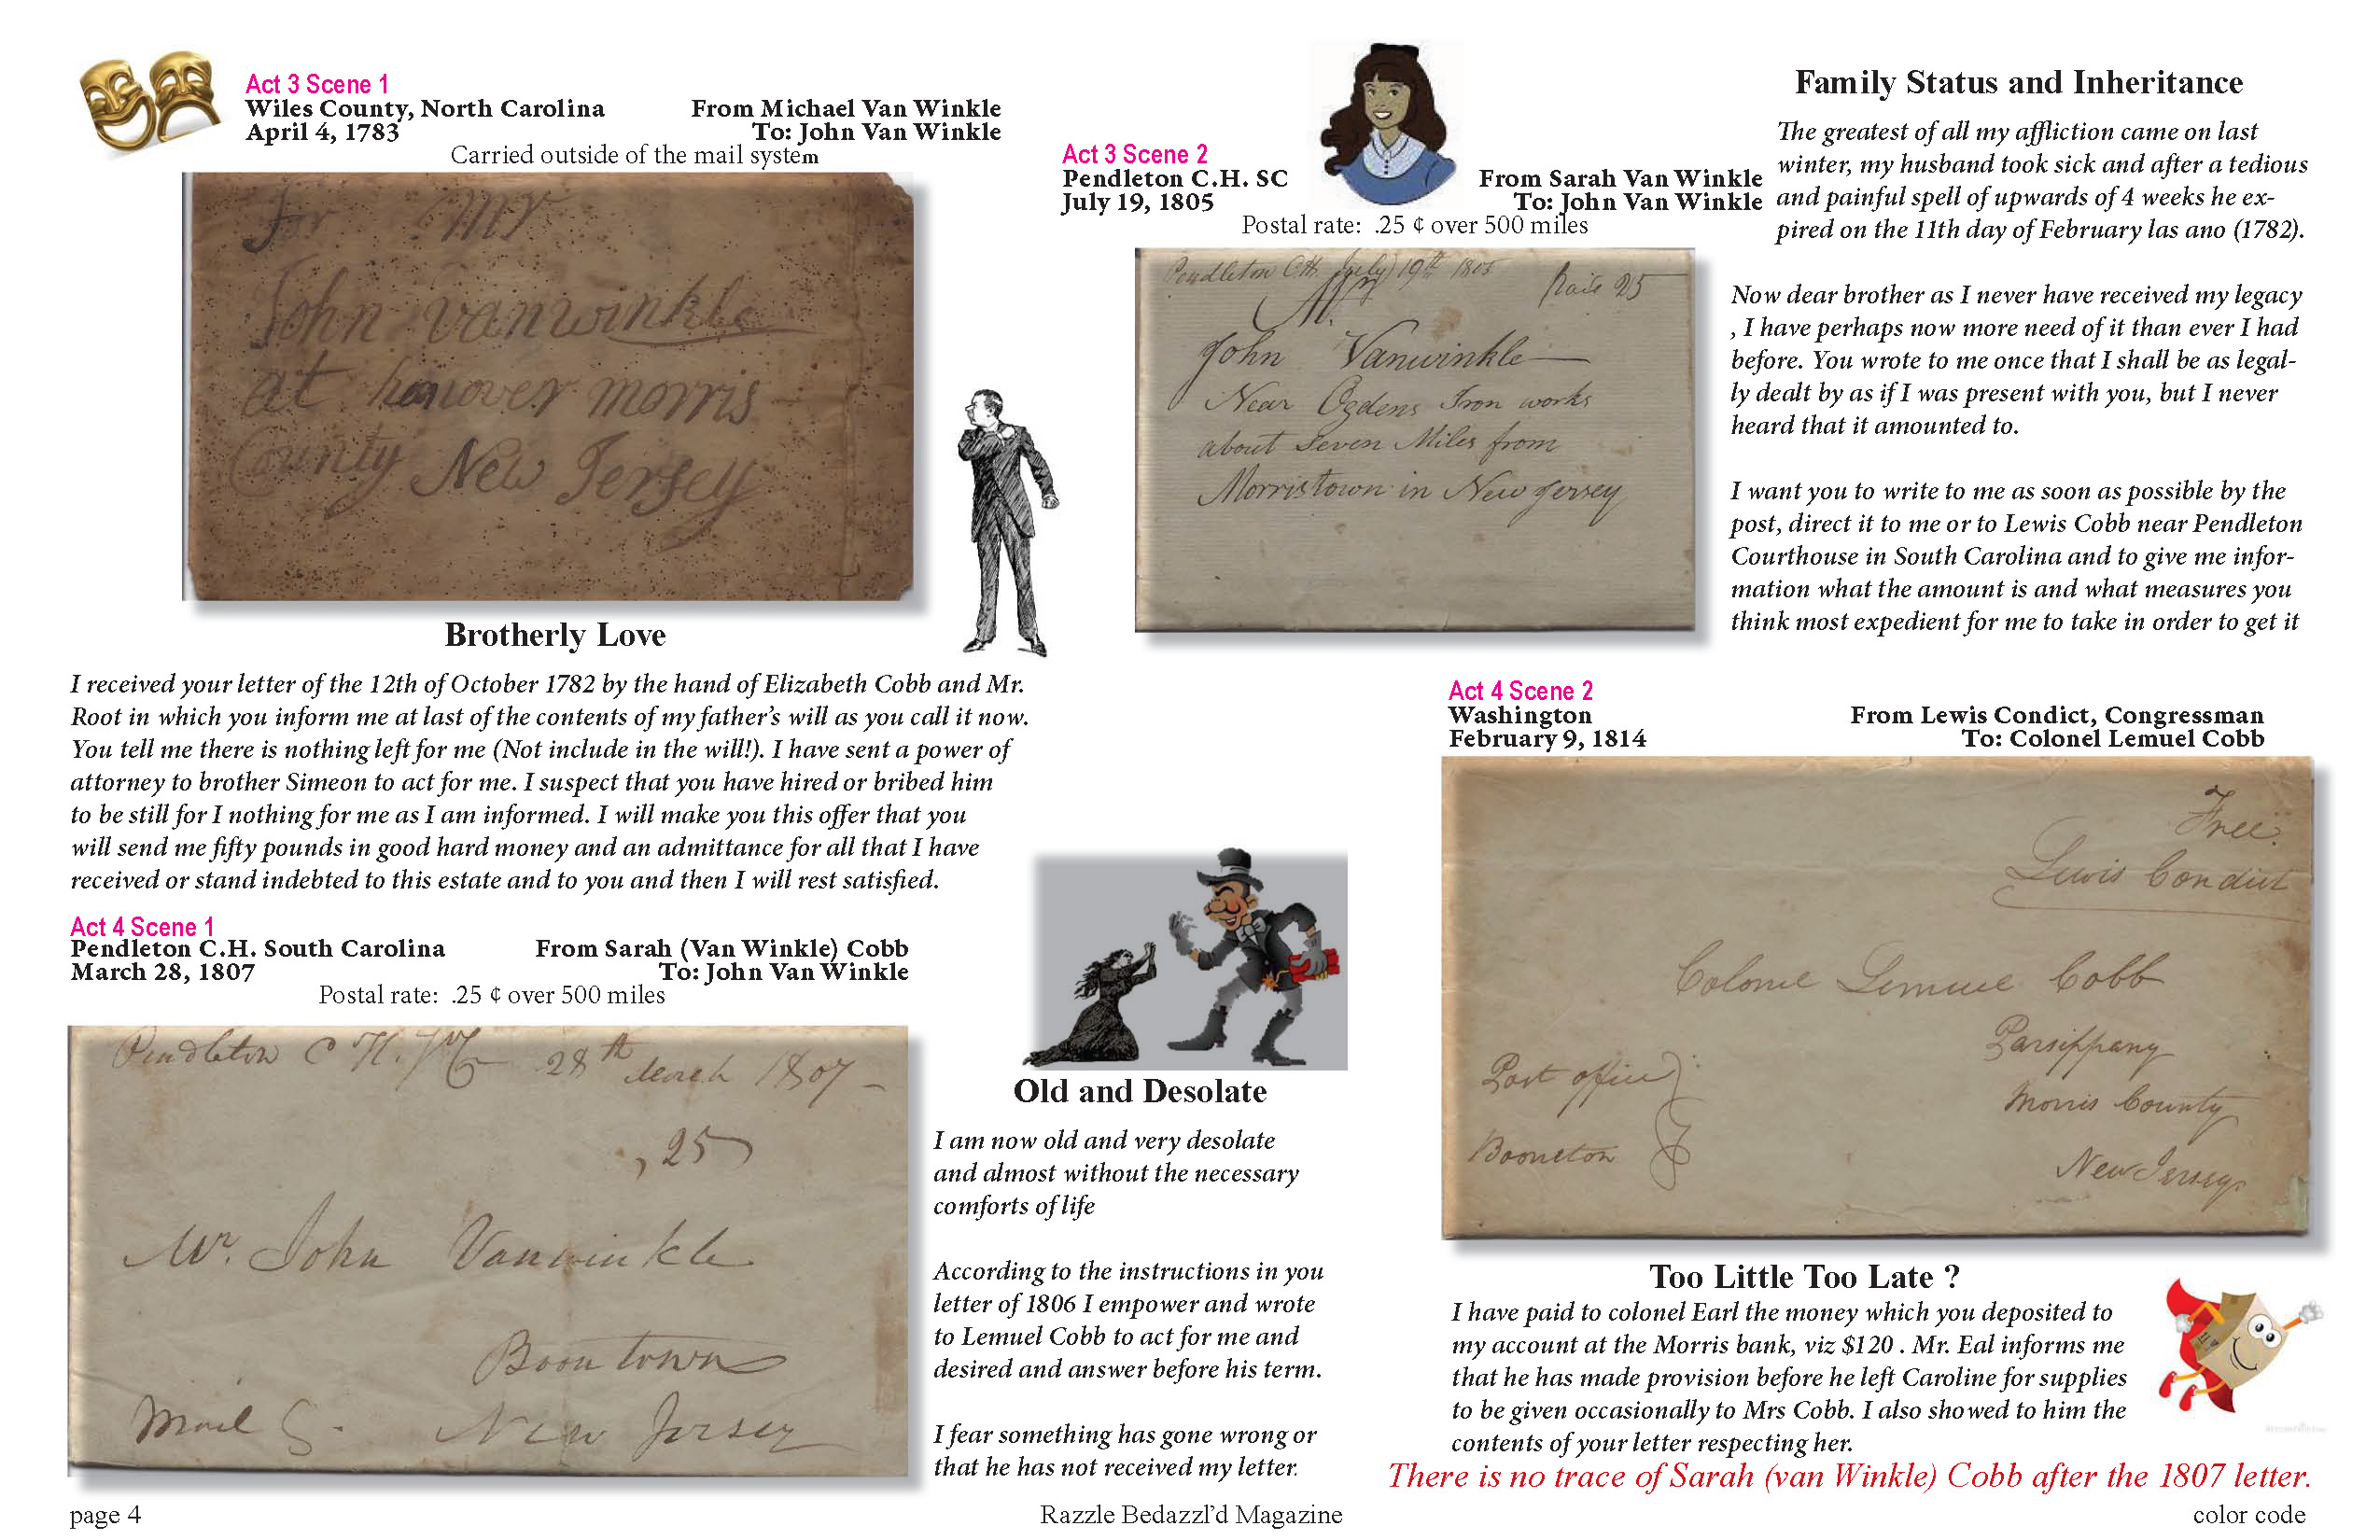 Act 3 Scene 1
Wiles County, North Carolina
From Michael Van Winkle
April 4, 1783
To: John Van Winkle
Carried outside of the mail system
For Mr
John vanwinkle
at hanover morris
County New Jersey
Brotherly Love
I received your letter of the 12th of October 1782 by the hand of Elizabeth Cobb and Mr.
Root in which you inform me at last of the contents of my father's will as you call it now.
You tell me there is nothing left for me (Not include in the will!). I have sent a power of
attorney to brother Simeon to act for me. I suspect that you have hired or bribed him
to be still for I nothing for me as I am informed. I will make you this offer that you
will send me fifty pounds in good hard money and an admittance for all that I have
received or stand indebted to this estate and to you and then I will rest satisfied.
Act 3 Scene 2
Pendleton C.H. SC
From Sarah Van Winkle
July 19, 1805
To: John Van Winkle
Postal rate: .25 ¢ over 500 miles
Pendleton C.H. July 19th 1805
Paid 25
Mr
John Vanwinkle
Near Ogdens Iron works
about Seven Miles from
Morristown in New Jersey
Family Status and Inheritance
The greatest of all my affliction came on last
winter, my husband took sick and after a tedious
and painful spell of upwards of 4 weeks he ex-
pired on the 11th day of February las ano (1782).
Now dear brother as I never have received my legacy
, I have perhaps now more need of it than ever I had
before. You wrote to me once that I shall be as legal-
ly dealt by as if I was present with you, but I never
heard that it amounted to.
I want you to write to me as soon as possible by the
post, direct it to me or to Lewis Cobb near Pendleton
Courthouse in South Carolina and to give me infor-
mation what the amount is and what measures you
think most expedient for me to take in order to get it
Act 4 Scene 1
Pendleton C.H. South Carolina
From Sarah (Van Winkle) Cobb
March 28, 1807
To: John Van Winkle
Postal rate: .25 ¢ over 500 miles
Pendleton C H. 28th March 1807
,25
Mr. John Vanwinkle
Boontown
Mail New Jersey
Old and Desolate
I am now old and very desolate
and almost without the necessary
comforts of life
According to the instructions in you
letter of 1806 I empower and wrote
to Lemuel Cobb to act for me and
desired and answer before his term.
I fear something has gone wrong or
that he has not received my letter.
Act 4 Scene 2
Washington
From Lewis Condict, Congressman
February 9, 1814
To: Colonel Lemuel Cobb
Free.
Lewis Condict
Colonel Lemuel Cobb
Parsippany
Post office
Morris County
Boonton
New Jersey
Too Little Too Late ?
I have paid to colonel Earl the money which you deposited to
my account at the Morris bank, viz $120 . Mr. Eal informs me
that he has made provision before he left Caroline for supplies
to be given occasionally to Mrs Cobb. I also showed to him the
contents of your letter respecting her.
There is no trace of Sarah (van Winkle) Cobb after the 1807 letter.
page 4
Razzle Bedazzl'd Magazine
color code